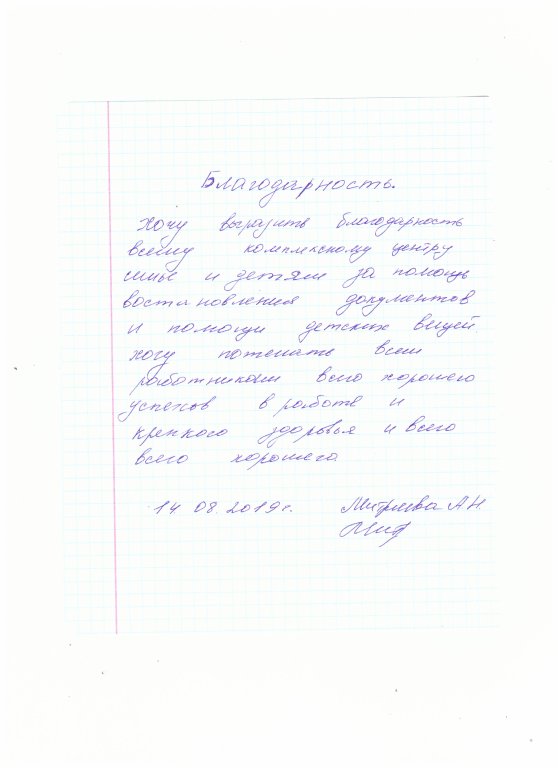 Благодарность.
Хочу выразить благодарность
всему комплексному центру
семье и детям за помощь
востановления документов
и помощи детских вещей
хочу пожелать всем
работникам всего хорошего
успехов в работе и
крепкого здоровья и всего
всего хорошего
14 08. 2019г. Митряева А Н